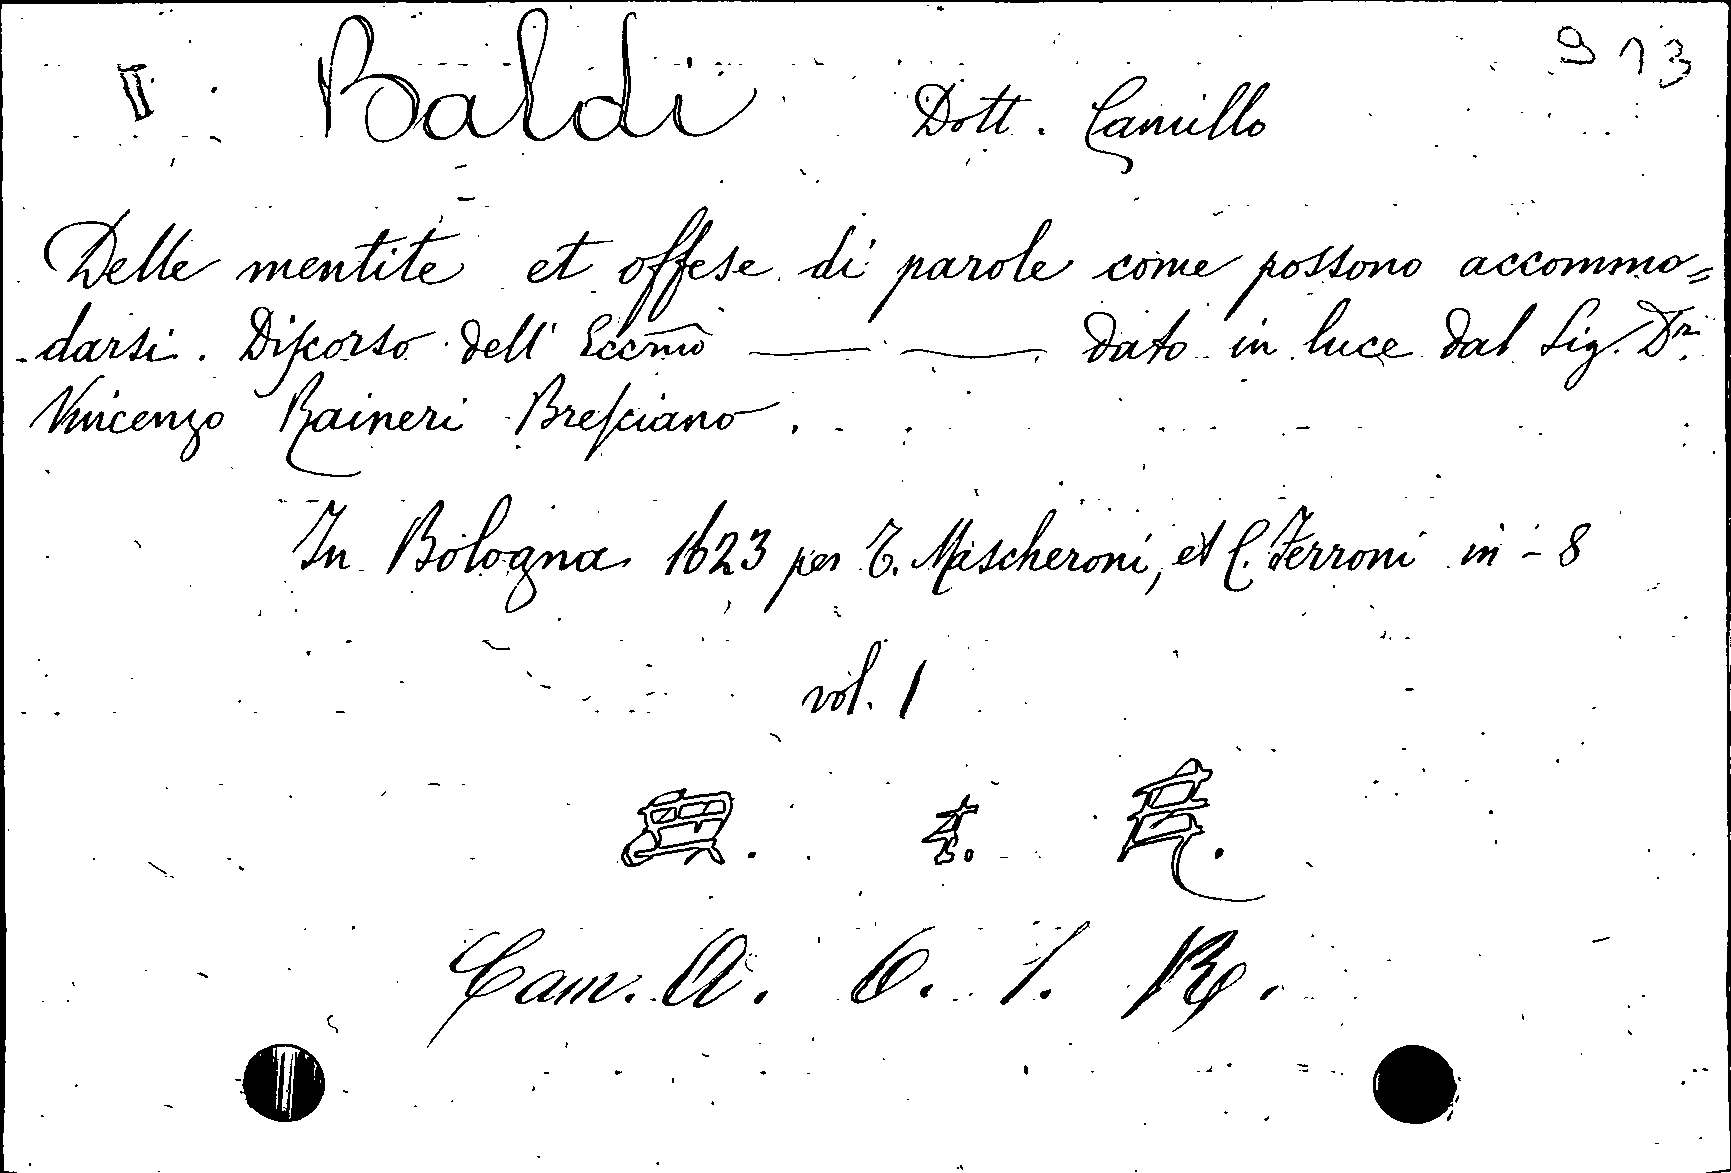 II Baldi Dott. Camillo 913
Delle mentite et offese di parole come possono accommo=
darsi. Diſcorso dell' Eccm̃o — — dato in luce dal Sig. Dr.
Vincenzo Raineri Breſciano.
In Bologna 1623 per T. Mascheroni, et C. Ferroni in-8
vol. 1
Cam. A. O. 1. R.